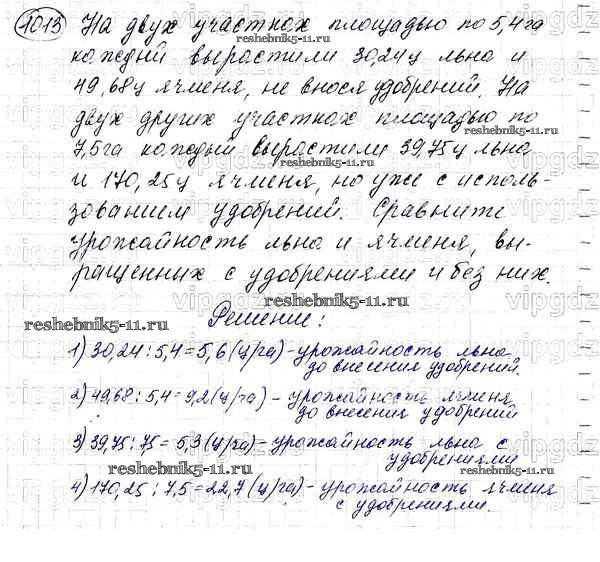 1013 На двух участках площадью по 5,4 га
каждый вырастили 30,24 ц льна и
49,68 ц ячменя, не внося удобрений. На
двух других участках площадью по
7,5 га каждый вырастили 39,75 ц льна
и 170,25 ц ячменя, но уже с исполь-
зованием удобрений. Сравните
урожайность льна и ячменя, вы-
ращенных с удобрениями и без них.
Решение:
1) 30,24 : 5,4 = 5,6 (ц/га) - урожайность льна
до внесения удобрений.
2) 49,68 : 5,4 = 9,2 (ц/га) - урожайность ячменя
до внесения удобрений
3) 39,75 : 7,5 = 5,3 (ц/га) - урожайность льна с
удобрениями
4) 170,25 : 7,5 = 22,7 (ц/га) - урожайность ячменя
с удобрениями.
reshebnik5-11.ru
reshebnik5-11.ru
reshebnik5-11.ru
reshebnik5-11.ru
reshebnik5-11.ru
reshebnik5-11.ru
vipgdz